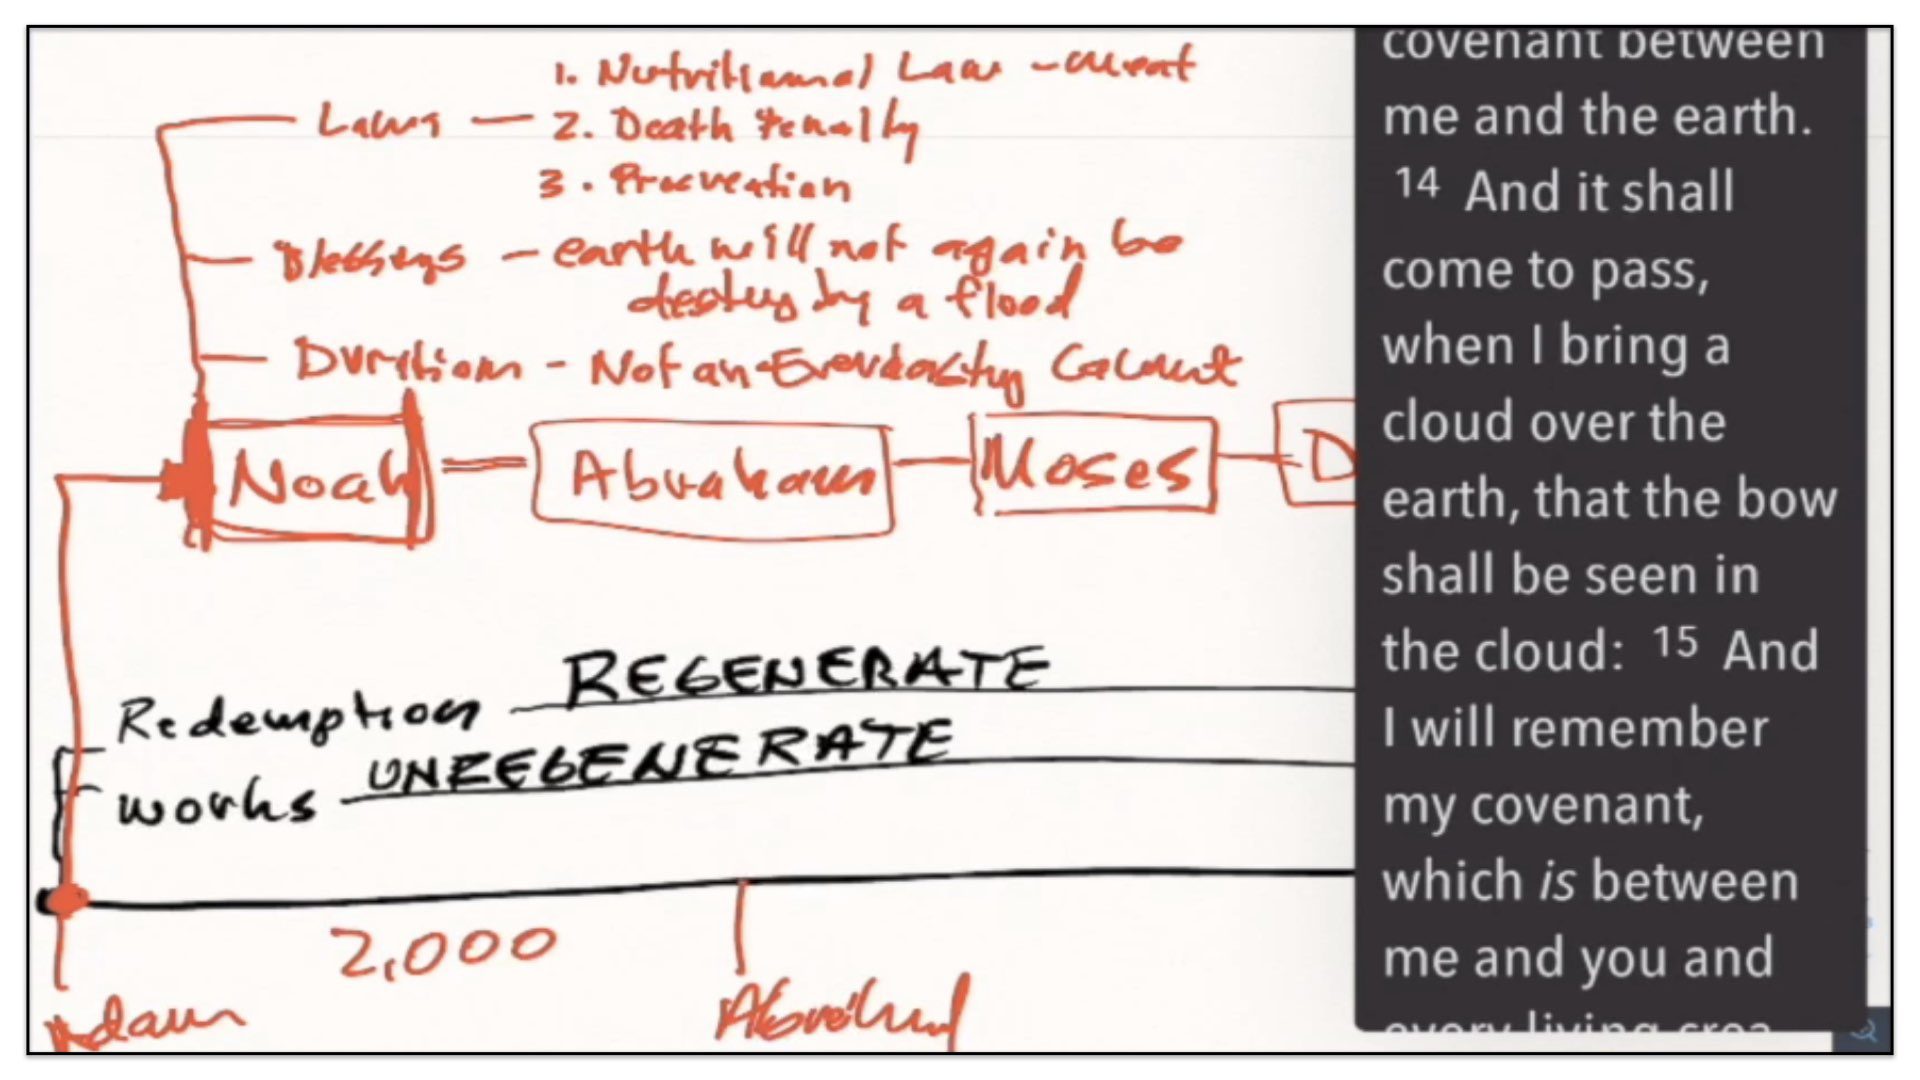 1. Nutritional Law - meat
Laws - 2. Death Penalty
3. Procreation
Blessings - earth will not again be
destroy by a flood
Duration - Not an Everlasting Covenant
Noah Abraham Moses D
Redemption REGENERATE
works UNREGENERATE
2,000
Adam Abraham
covenant between
me and the earth.
14 And it shall
come to pass,
when I bring a
cloud over the
earth, that the bow
shall be seen in
the cloud: 15 And
I will remember
my covenant,
which is between
me and you and
every living crea